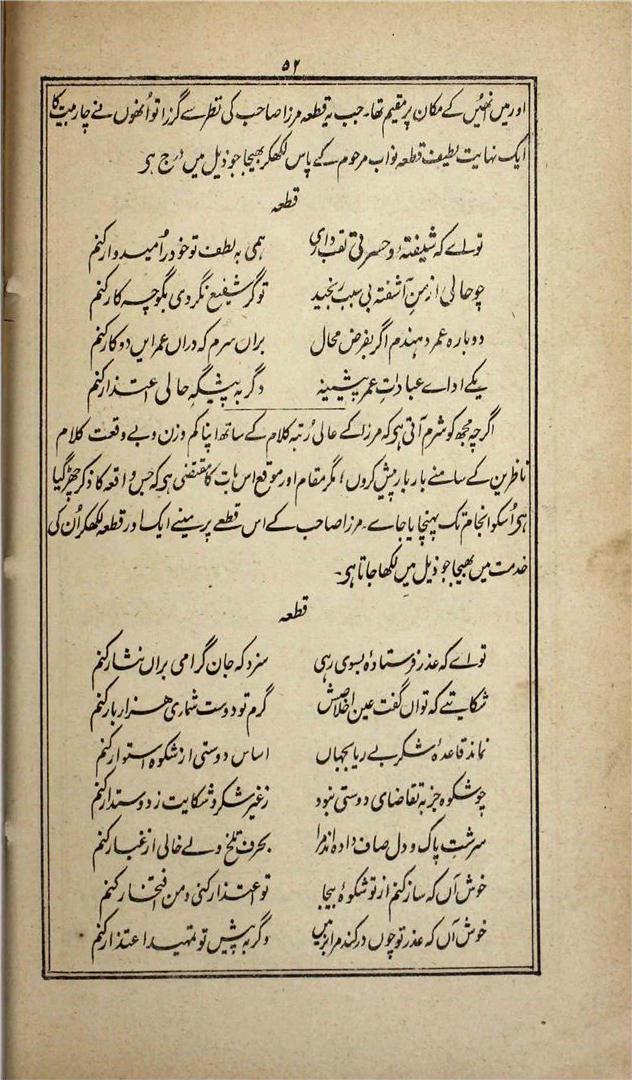 ۵۲
اور میں انھیں کے مکان پر مقیم تھا۔ جب یہ قطعہ مرزا صاحب کی نظر سے گزرا تو اُنھوں نے چار بیت کا
ایک نہایت لطیف قطعہ نواب مرحوم کے پاس لکھکر بھیجا جو ذیل میں درج ہی
قطعہ
تو اے کہ شیفتہ و حسرتی لقب داری ہمی بہ لطف تو خود را امیدوار کنم
چو حالی از من آشفتہ بی سبب رنجید تو گر شفیع نگردی بگو چہ کار کنم
دوبارہ عمر دہندم اگر بفرض محال براں سرم کہ دراں عمر ایں دو کار کنم
یکے اداے عبادات عمر پیشینہ دگر بہ پیشگہ حالی اعتذار کنم
اگرچہ مجھ کو شرم آتی ہی کہ مرزا کے عالی رُتبہ کلام کے ساتھ اپنا کم وزن و بے وقعت کلام
ناظرین کے سامنے بار بار پیش کروں؛ مگر مقام اور موقع اس بات کا مقتضی ہی کہ جس واقعہ کا ذکر چھڑ گیا
ہی اُسکو انجام تک پہنچایا جاے۔ مرزا صاحب کے اس قطعے پر مینے ایک اور قطعہ لکھکر اُن کی
خدمت میں بھیجا جو ذیل میں لکھا جاتا ہی۔
قطعہ
تو اے کہ عذر فرستادۂ بسوی رہی سزد کہ جان گرامی براں نثار کنم
شکایتے کہ تواں گفت عین اخلاصش گرم تو دوست شماری ہزار بار کنم
نماند قاعدۂ شکر بے ریا بجہاں اساس دوستی از شکوہ استوار کنم
چو شکوہ جز بہ تقاضای دوستی نبود ز غیر شکر و شکایت ز دوستدار کنم
سرشت پاک و دل صاف دادہ اند مرا بحرف تلخ ولے خالی از غبار کنم
خوش آں کہ ساز کنم از تو شکوۂ بیجا تو اعتذار کنی و من افتخار کنم
خوش آں کہ عذر تو چوں در کند مرا بزمیں دگر بہ پیش تو تمہید اعتذار کنم